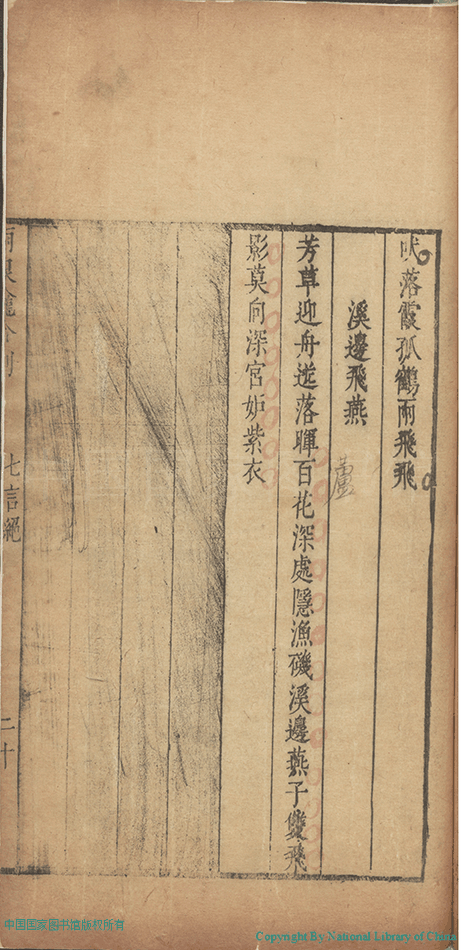 吠落霞孤鶴兩飛飛
溪邊飛燕
蘆
芳草迎舟送落暉百花深處隱漁磯溪邊燕子雙飛
影莫向深宮妒紫衣
七言絕
二十
中国国家图书馆版权所有
Copyright By National Library of China